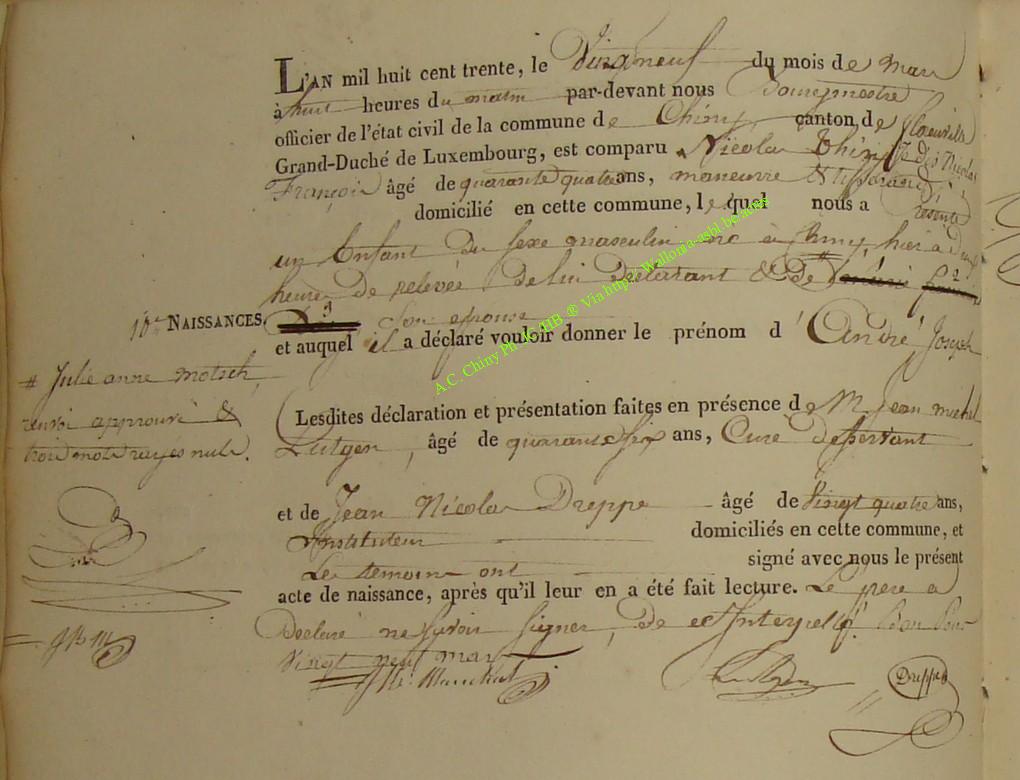 L'AN mil huit cent trente, le Vingneuf du mois de mars
à huit heures du matin par-devant nous Bourgmestre
officier de l'état civil de la commune de Chiny, canton de florenville
Grand-Duché de Luxembourg, est comparu Nicolas Thiry fe dis Nicolas
François âgé de quarante quatre ans, maneuvre & tisserand
domicilié en cette commune, le quel nous a présenté
un Enfant du sexe masculin né à Chiny, hier à deux
heures de relevée de lui declarant & de #
son epouse
10e NAISSANCES.
et auquel il a déclaré vouloir donner le prénom d'André Joseph
# Julie anne motsch,
renvoi approuvé &
trois mots rayés nuls.
Lesdites déclaration et présentation faites en présence de M. Jean michel
Lutgen, âgé de quarante six ans, Curé desservant
et de Jean Nicolas Dreppe âgé de Vingt quatre ans,
Instituteur domiciliés en cette commune, et
Les temoins ont signé avec nous le présent
acte de naissance, après qu'il leur en a été fait lecture. Le pere a
Declaré ne savoir signer, de ce Interpellé.
Vingt neuf mars
Lutgen Dreppe
A.C. Chiny Ph. JC HB ® Via http://Wallonia-asbl.be/actes